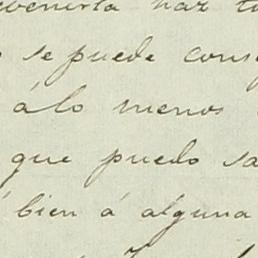 haz
se puede cons
álo menos
que puedo sa
bien á alguna